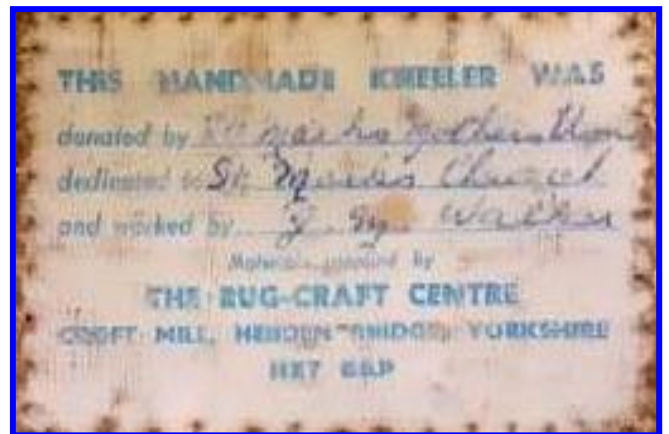 THIS HANDMADE KNEELER WAS
donated by St Marks Mothers Union
dedicated to St Marks Church
and worked by J. M. Walker
Materials supplied by
THE RUG-CRAFT CENTRE
CROFT MILL, HEBDEN BRIDGE, YORKSHIRE
HX7 8AP